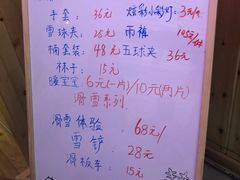 手套: 36元 炫彩小彩灯: 3元/个
雪球夹: 25元 雨裤
桶套装: 48元 五球夹 36元
袜子: 15元
暖宝宝 6元(一片)/10元(两片)
滑雪系列
滑雪体验 68元/
雪铲 28元
滑板车: 15元